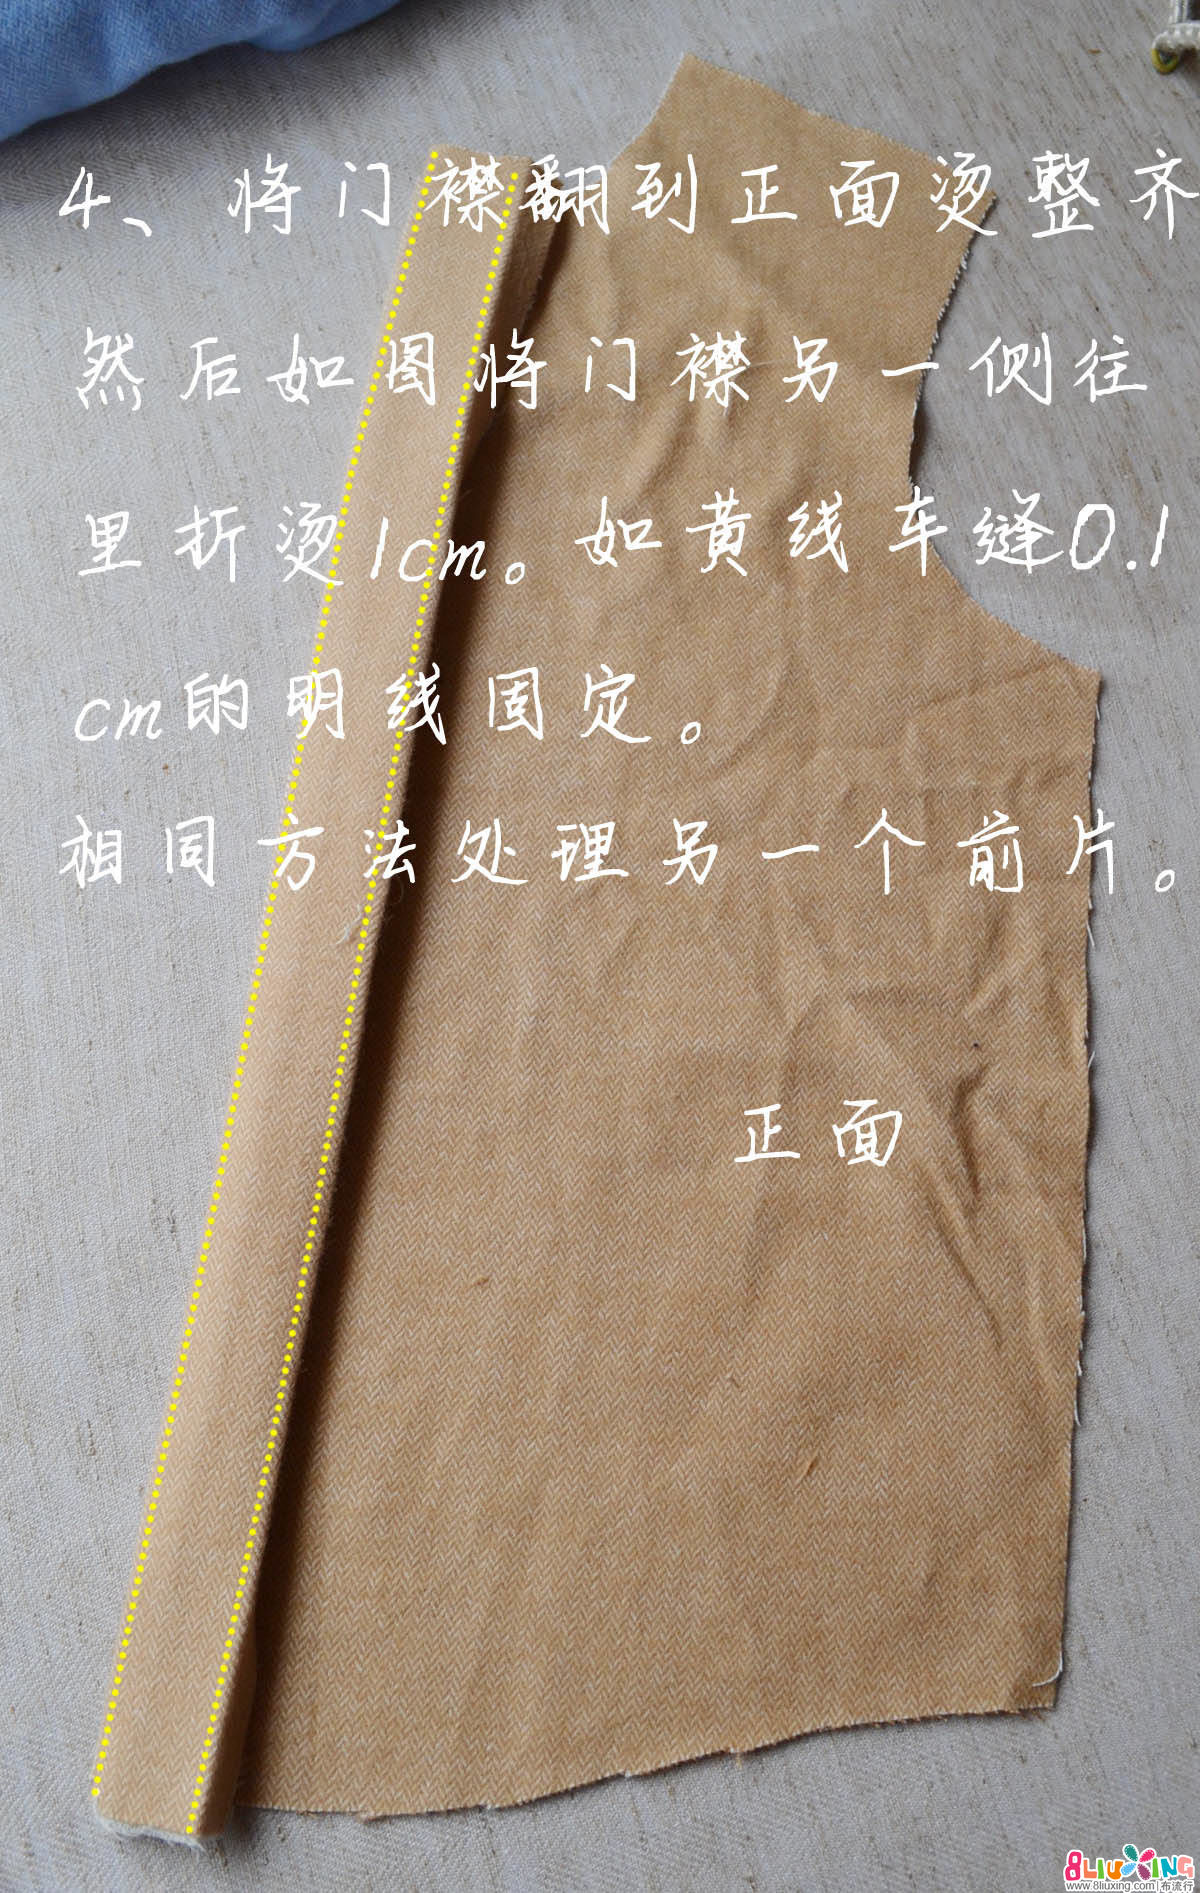 4、将门襟翻到正面烫整齐
然后如图将门襟另一侧往
里折烫1cm。如黄线车缝0.1
cm的明线固定。
相同方法处理另一个前片。
正面
8LIUXING
www.8liuxing.com|布流行